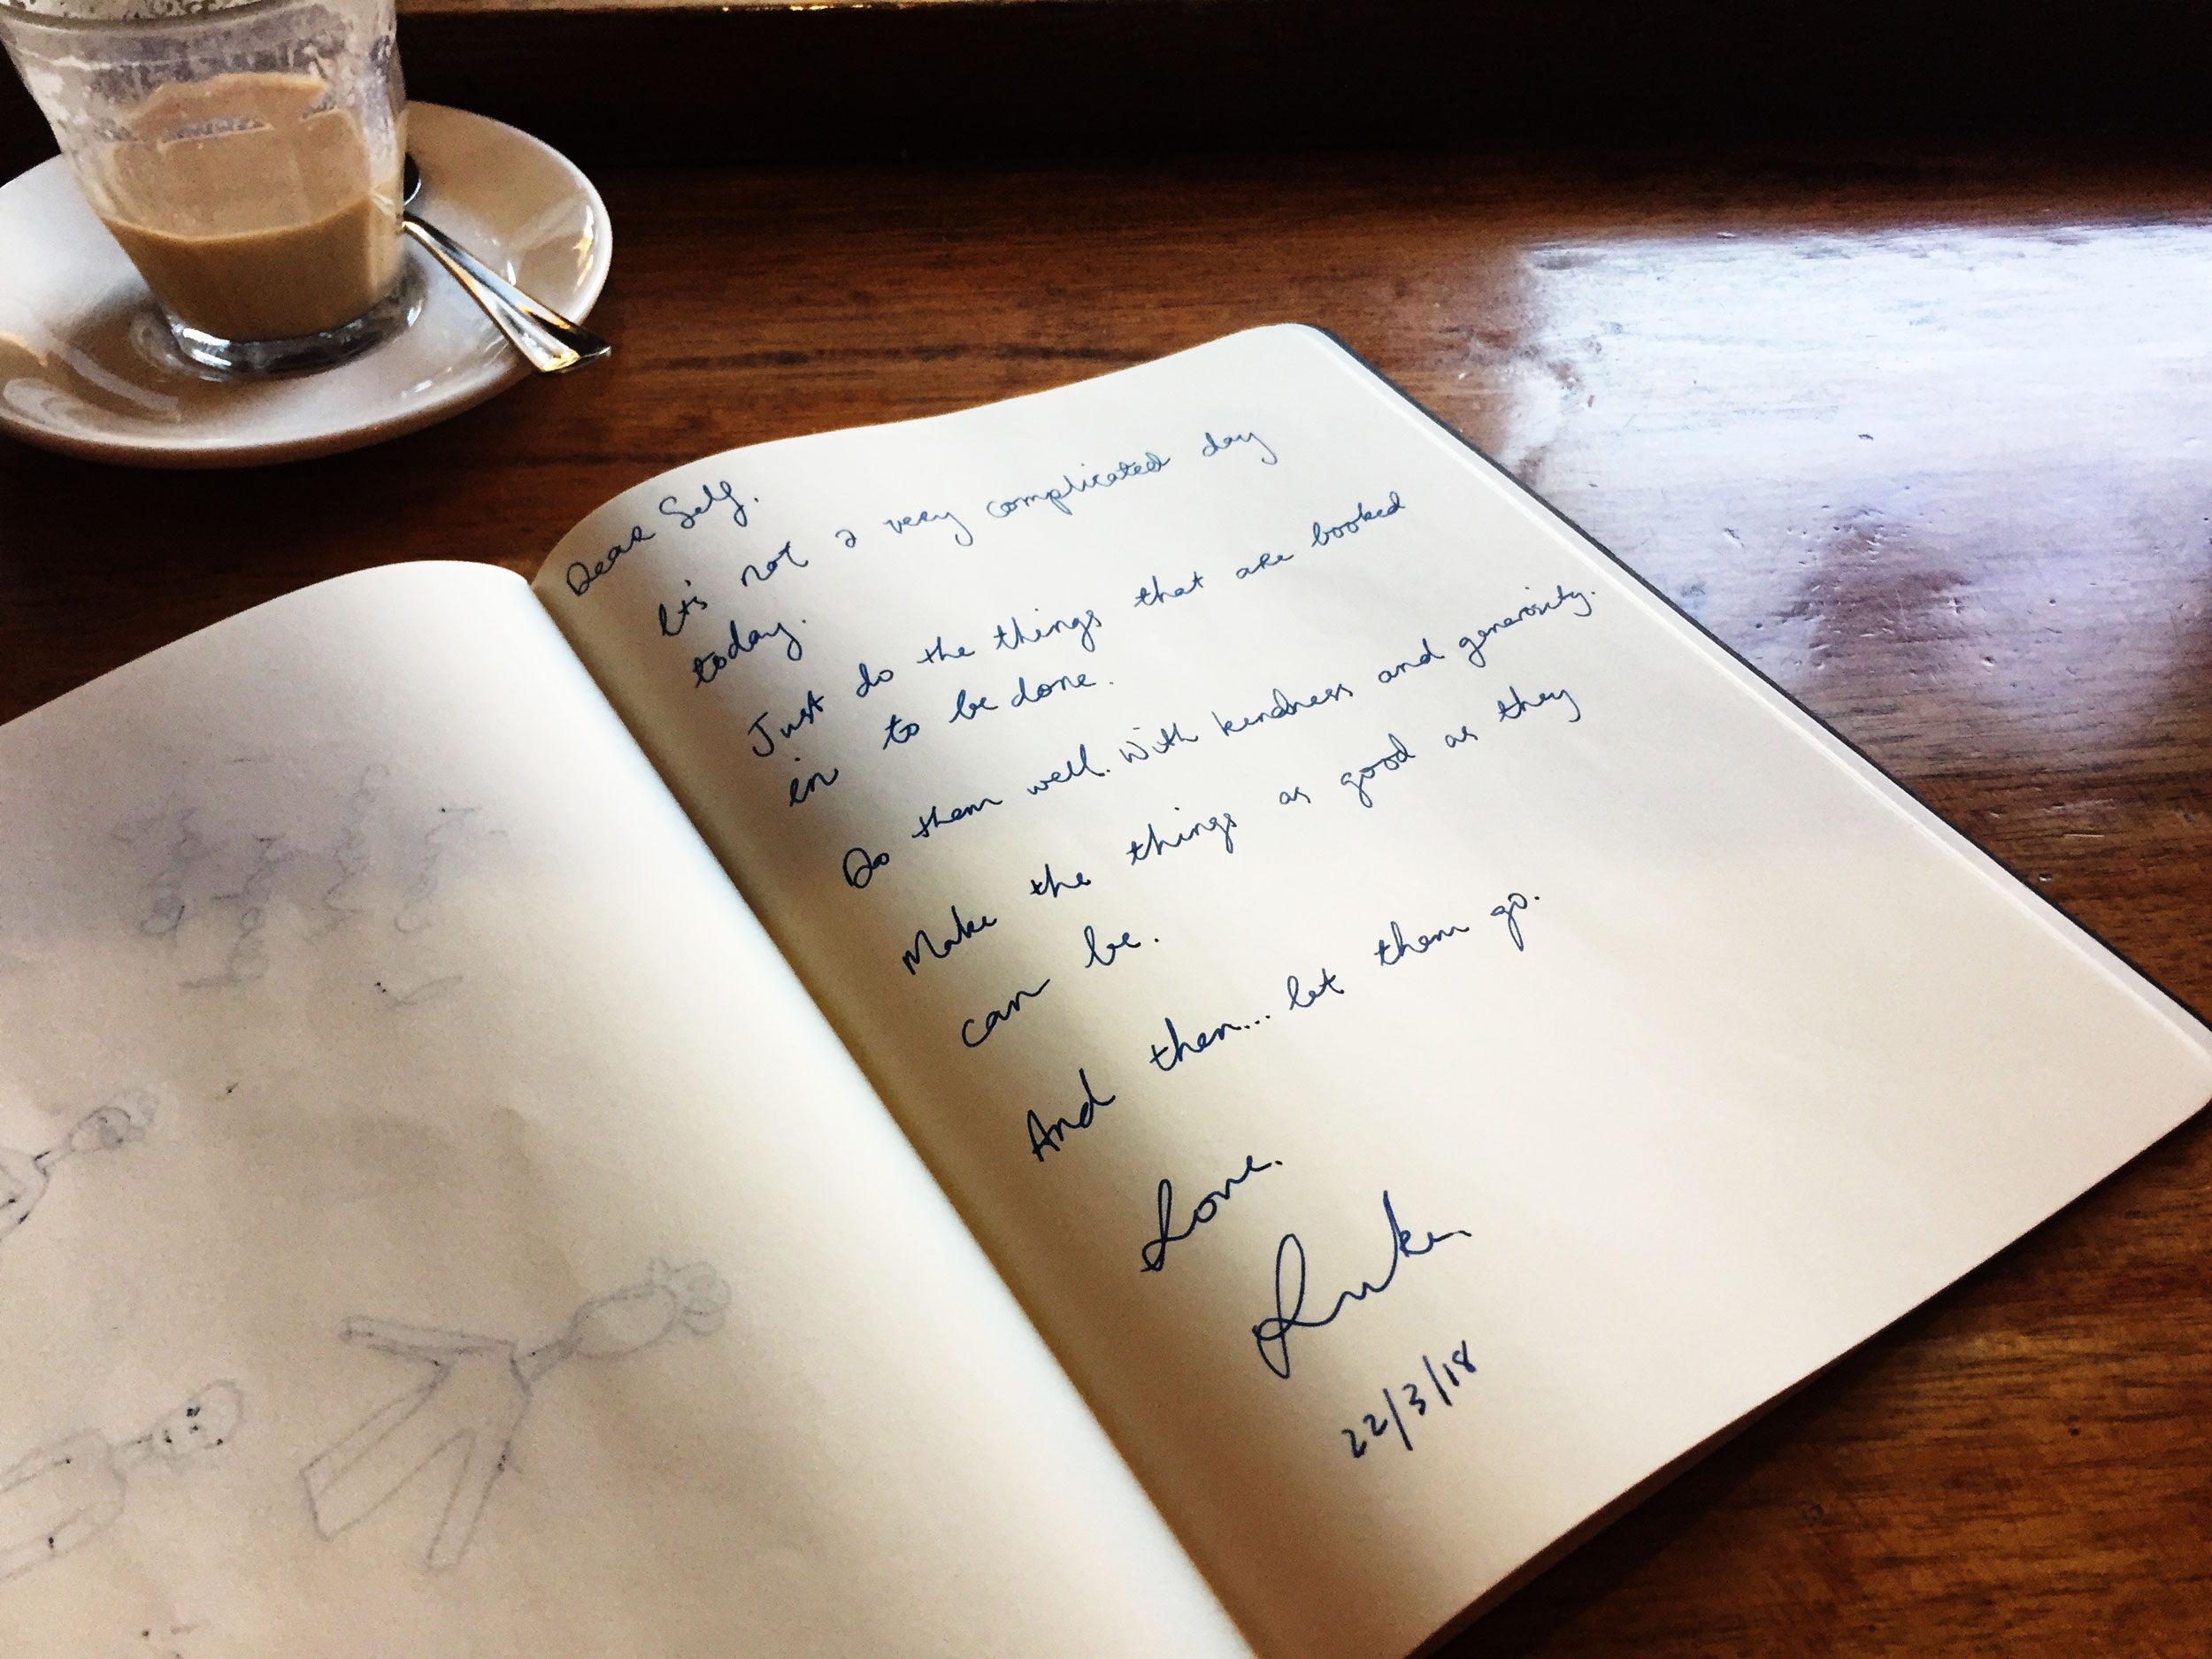 Dear Self.
It's not a very complicated day
today.
Just do the things that are booked
in to be done.
Do them well. With kindness and generosity.
Make the things as good as they
can be.
And then... let them go.
Love.
Luke.
22/3/18